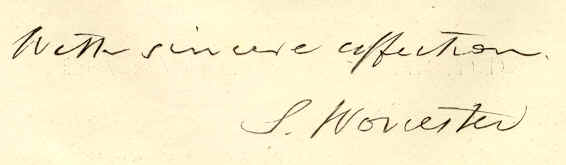 With sincere affection.
S. Worcester